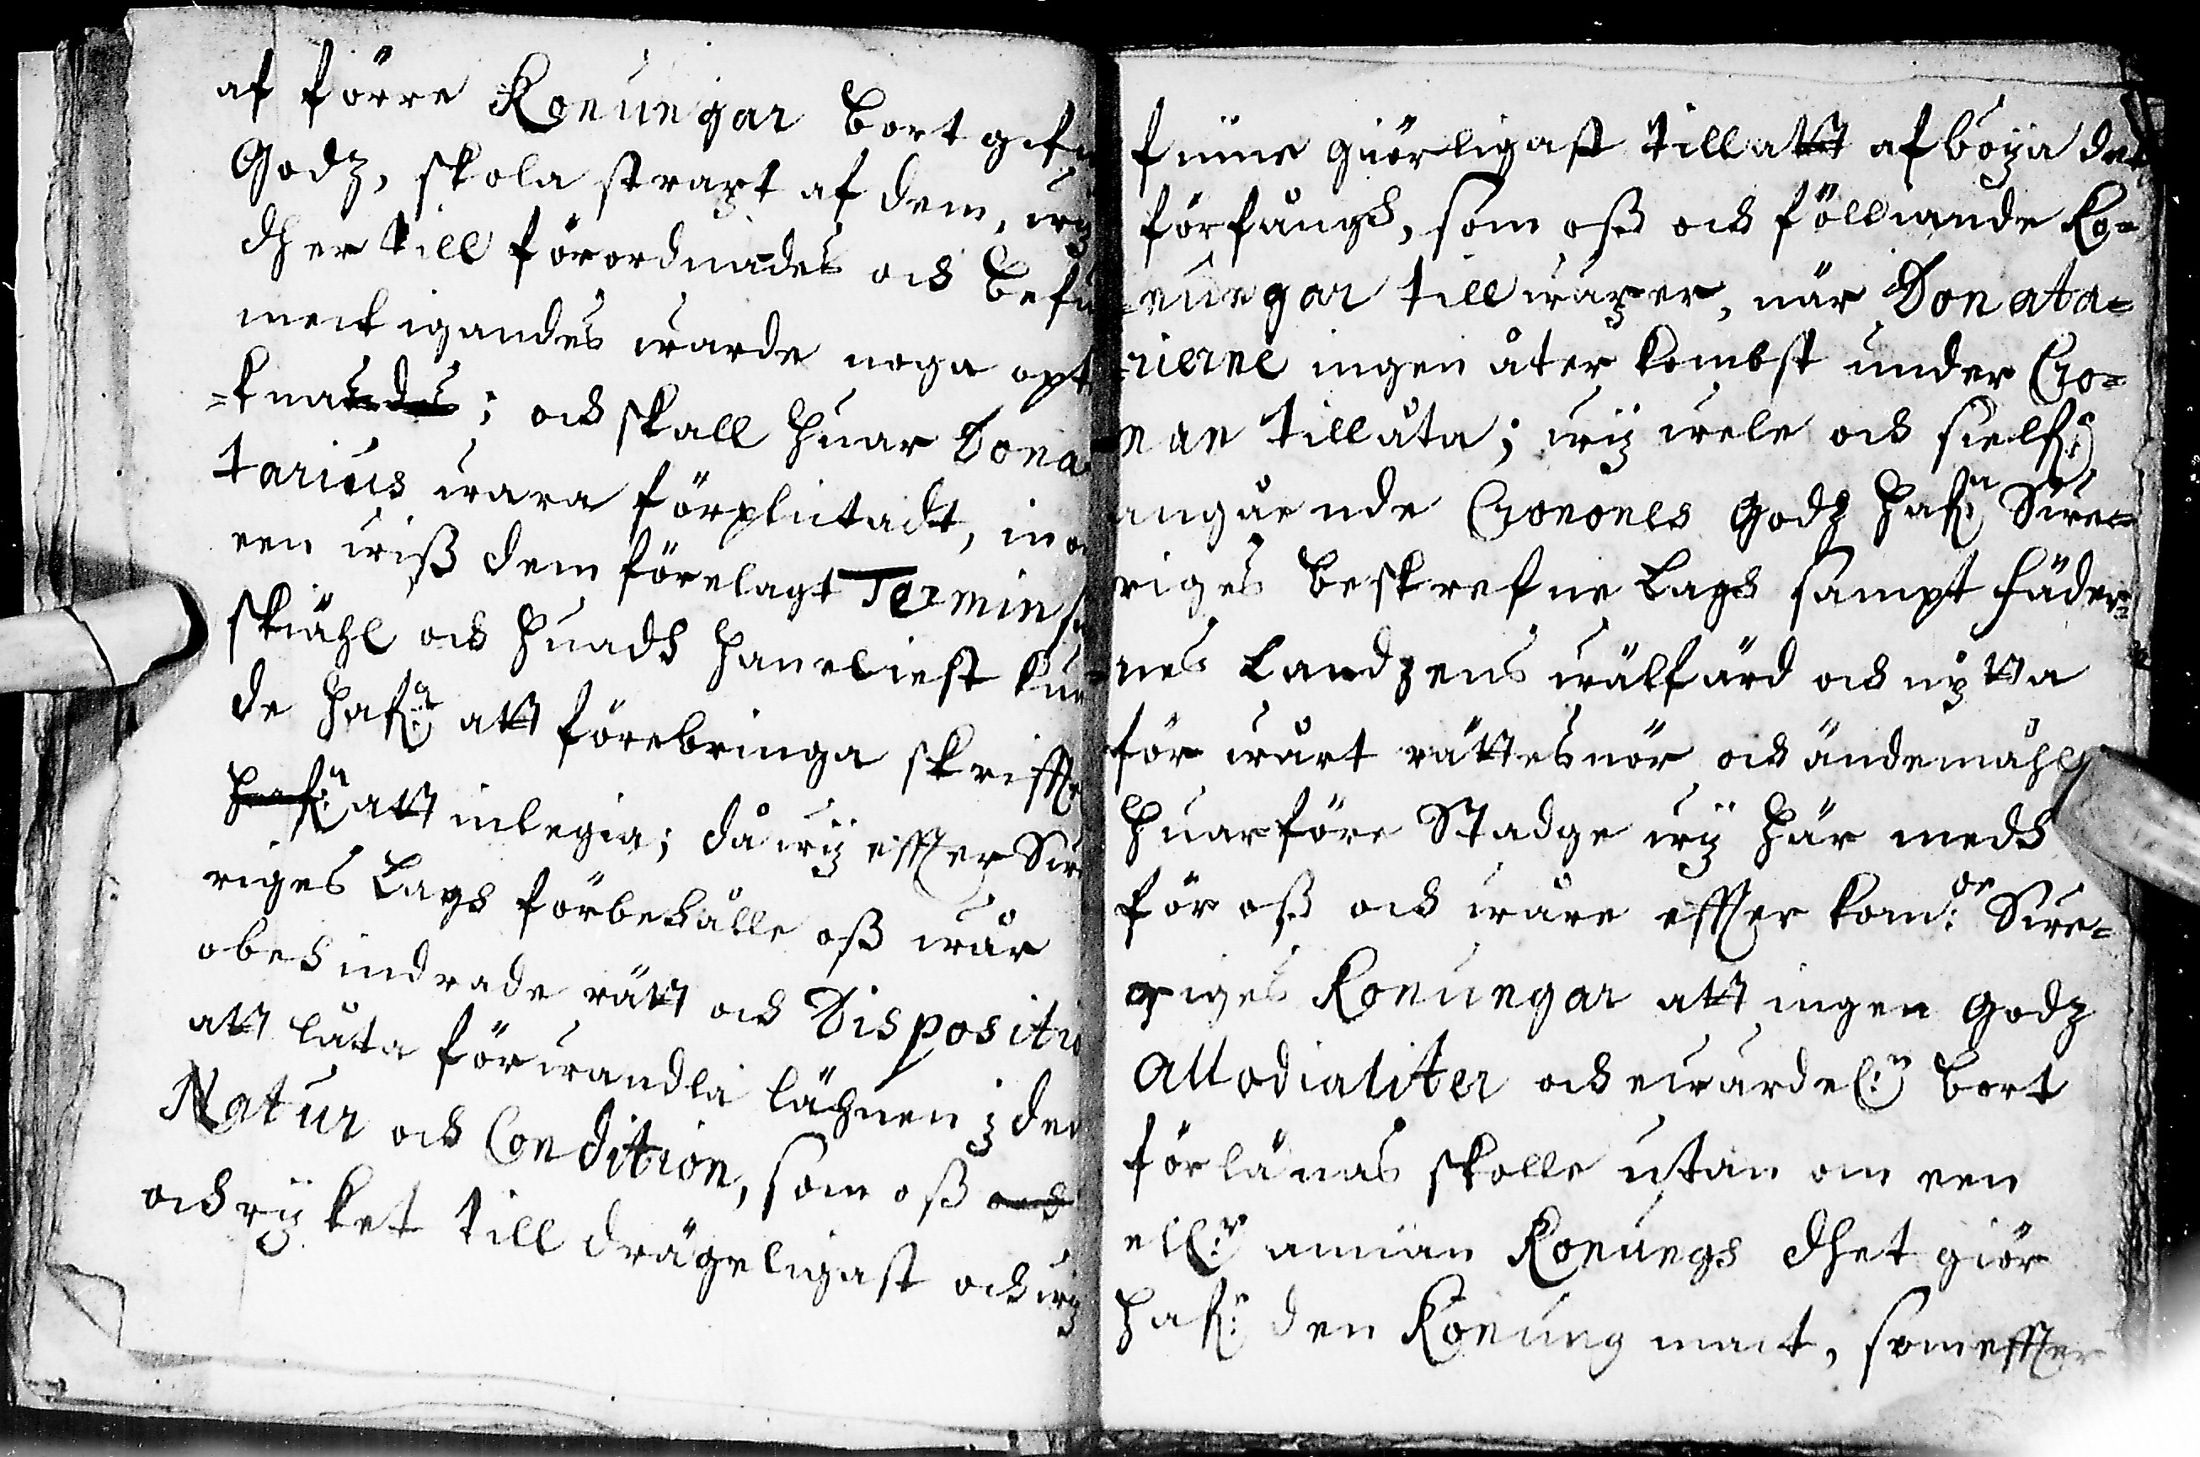 af förre Konungar bort gifn
Godz, skola straxt af dem, wij
dher till förordnandes och befu
mecktigandes warde noga opt
=knas des; och skall huar Dona
tarius wara förplictadt, in
een wiss dem förelagt Termin
skiähl och huadh han eliest kun
de haf:r att förebringa skrifft
haf:r att inlegia; då wij effter Swe
riges Lagh förbehålle oss wår
obehindrade rätt och Dispositi
att låta förwandla lähnen i den
Natur och Condition, som oss och
och rijket till drägeligast och wij
finne giörligast till att afböya det
förfångh, som oss och föll iande Ko=
=nungar till wäxer, när Donata=
=rierne ingen åter kombst under Cro=
nan tillåta; wij wele och sielf:
angående Cronones Godz haf:a Swe=
riges beskrefne Lagh sampt fäder=
nes Landzens wälfärd och nytta
för wårt rättesnör och ändemåhl
huarföre Stadge wij här medh
för oss och wåre effter kom:de Swe=
riges Konungar att ingen Godz
allodialiter och ewärdel:n bort
förlänas skolle utan om een
ell:r annan Konungh dhet giör
haf:r den Konung mackt, som effter